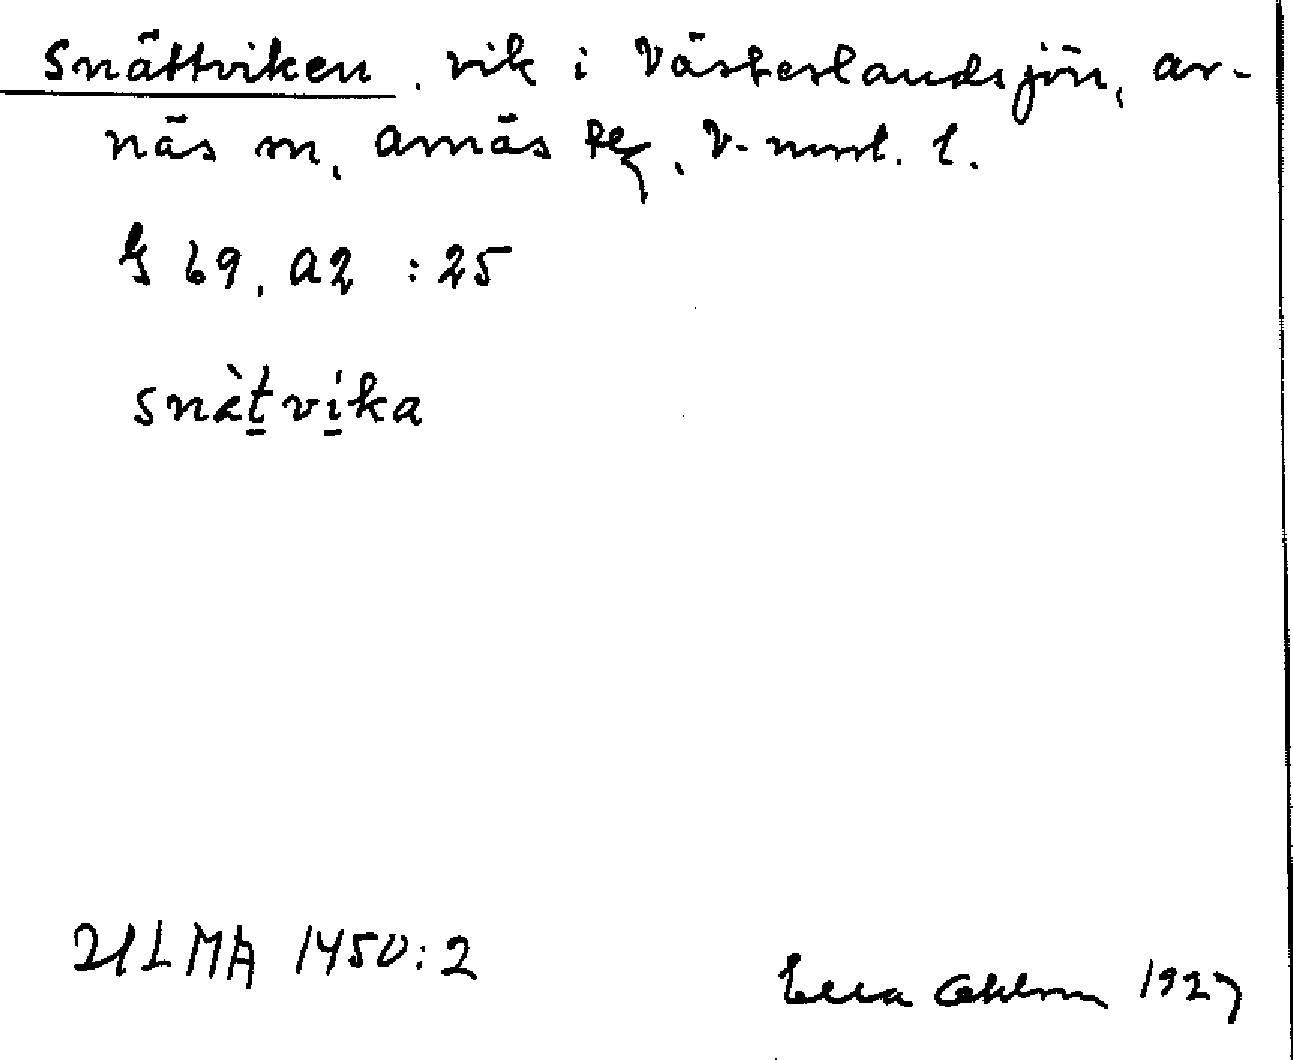 Snättviken, vik i Västerlandsjön, Ar-
näs m, Arnäs sg, V-nmrl. l.
G 69, a2 : 25
snàtvika
ULMA 1450:2
Ella 1927